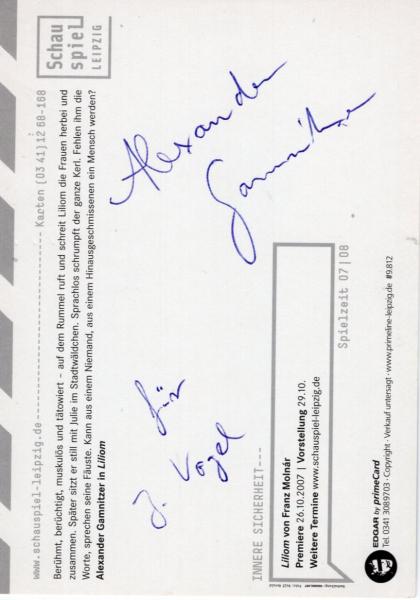 www.schauspiel-leipzig.de Karten (03 41) 12 68-168
Schau
spiel
LEIPZIG
Berühmt, berüchtigt, muskulös und tätowiert - auf dem Rummel ruft und schreit Liliom die Frauen herbei und
zusammen. Später sitzt er still mit Julie im Stadtwäldchen. Sprachlos schrumpft der ganze Kerl. Fehlen ihm die
Worte, sprechen seine Fäuste. Kann aus einem Niemand, aus einem Hinausgeschmissenen ein Mensch werden?
Alexander Gamnitzer in Liliom
für
J. Vogel
Alexander
Gamnitzer
INNERE SICHERHEIT---
Liliom von Franz Molnár
Premiere 26.10.2007 | Vorstellung 29.10.
Weitere Termine www.schauspiel-leipzig.de
Spielzeit 07|08
EDGAR by primeCard
Tel. 0341 3089703 · Copyright · Verkauf untersagt · www.primeline-leipzig.de #9.812